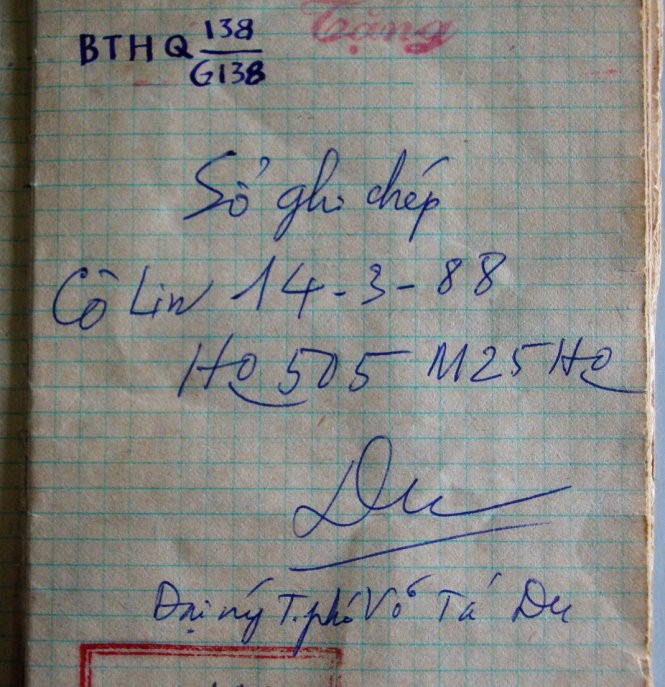 BTHQ 138
G138
Tặng
Sổ ghi chép
Cô Lin 14-3-88
HQ 505 M25 HQ
Du
Đại úy T.phó Võ Tá Du